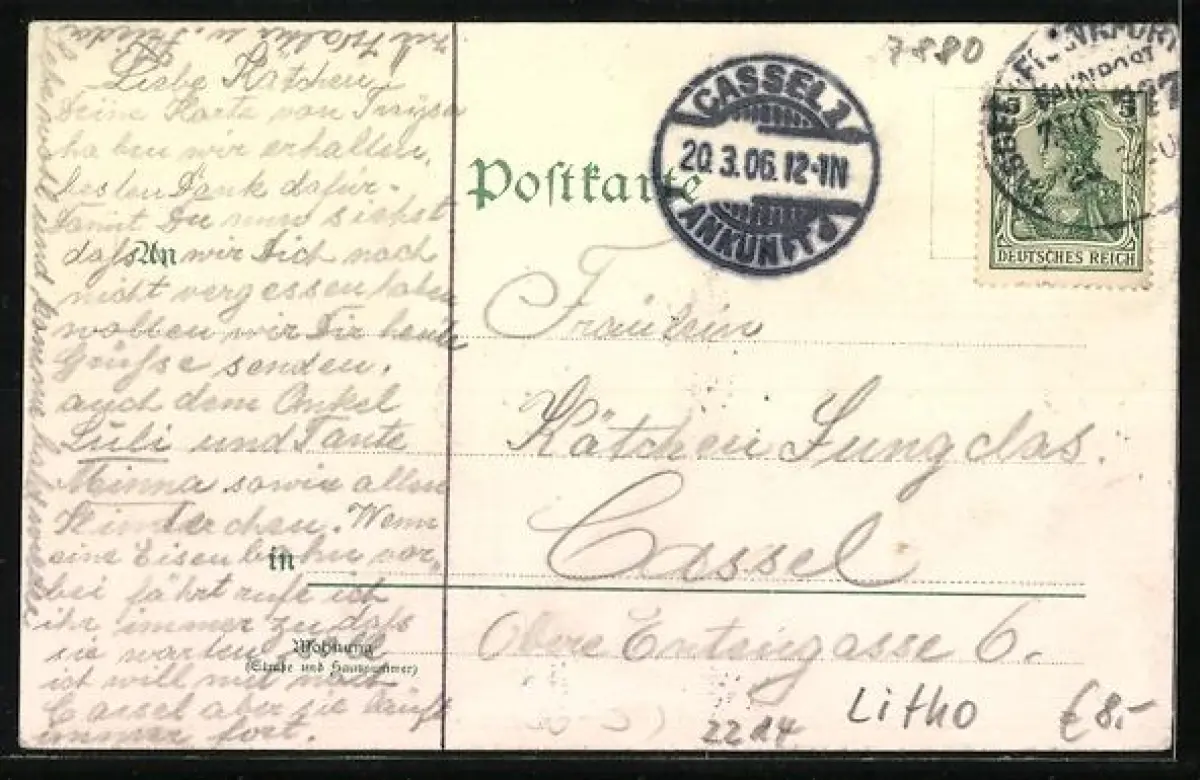 Liebe Kätchen
Deine Karte von Traysa
haben wir erhalten,
besten Dank dafür.
Damit Du nun siehst
daß wir Dich noch
nicht vergessen haben
wollen wir Dir heute
Grüße senden.
auch dem Onkel
Juli und Tante
Minna sowie allen
Kinderchen. Wenn
eine Eisenbahn vor-
bei fährt rufe ich
ihr immer zu daß
sie warten soll
ich will mit nach
Cassel aber sie läuft
immer fort.
Lebe wohl und komme bald wieder
Walter u. Frieda
Postkarte
An
in
Wohnung
(Straße und Hausnummer)
CASSEL 1
20.3.06.12-1N
ANKUNFT
7880
FRANKFURT
BAHNPOST
5 5
DEUTSCHES REICH
Fräulein
Kätchen Jungclas.
Cassel
Obere 6.
2214
Litho
€ 8.-